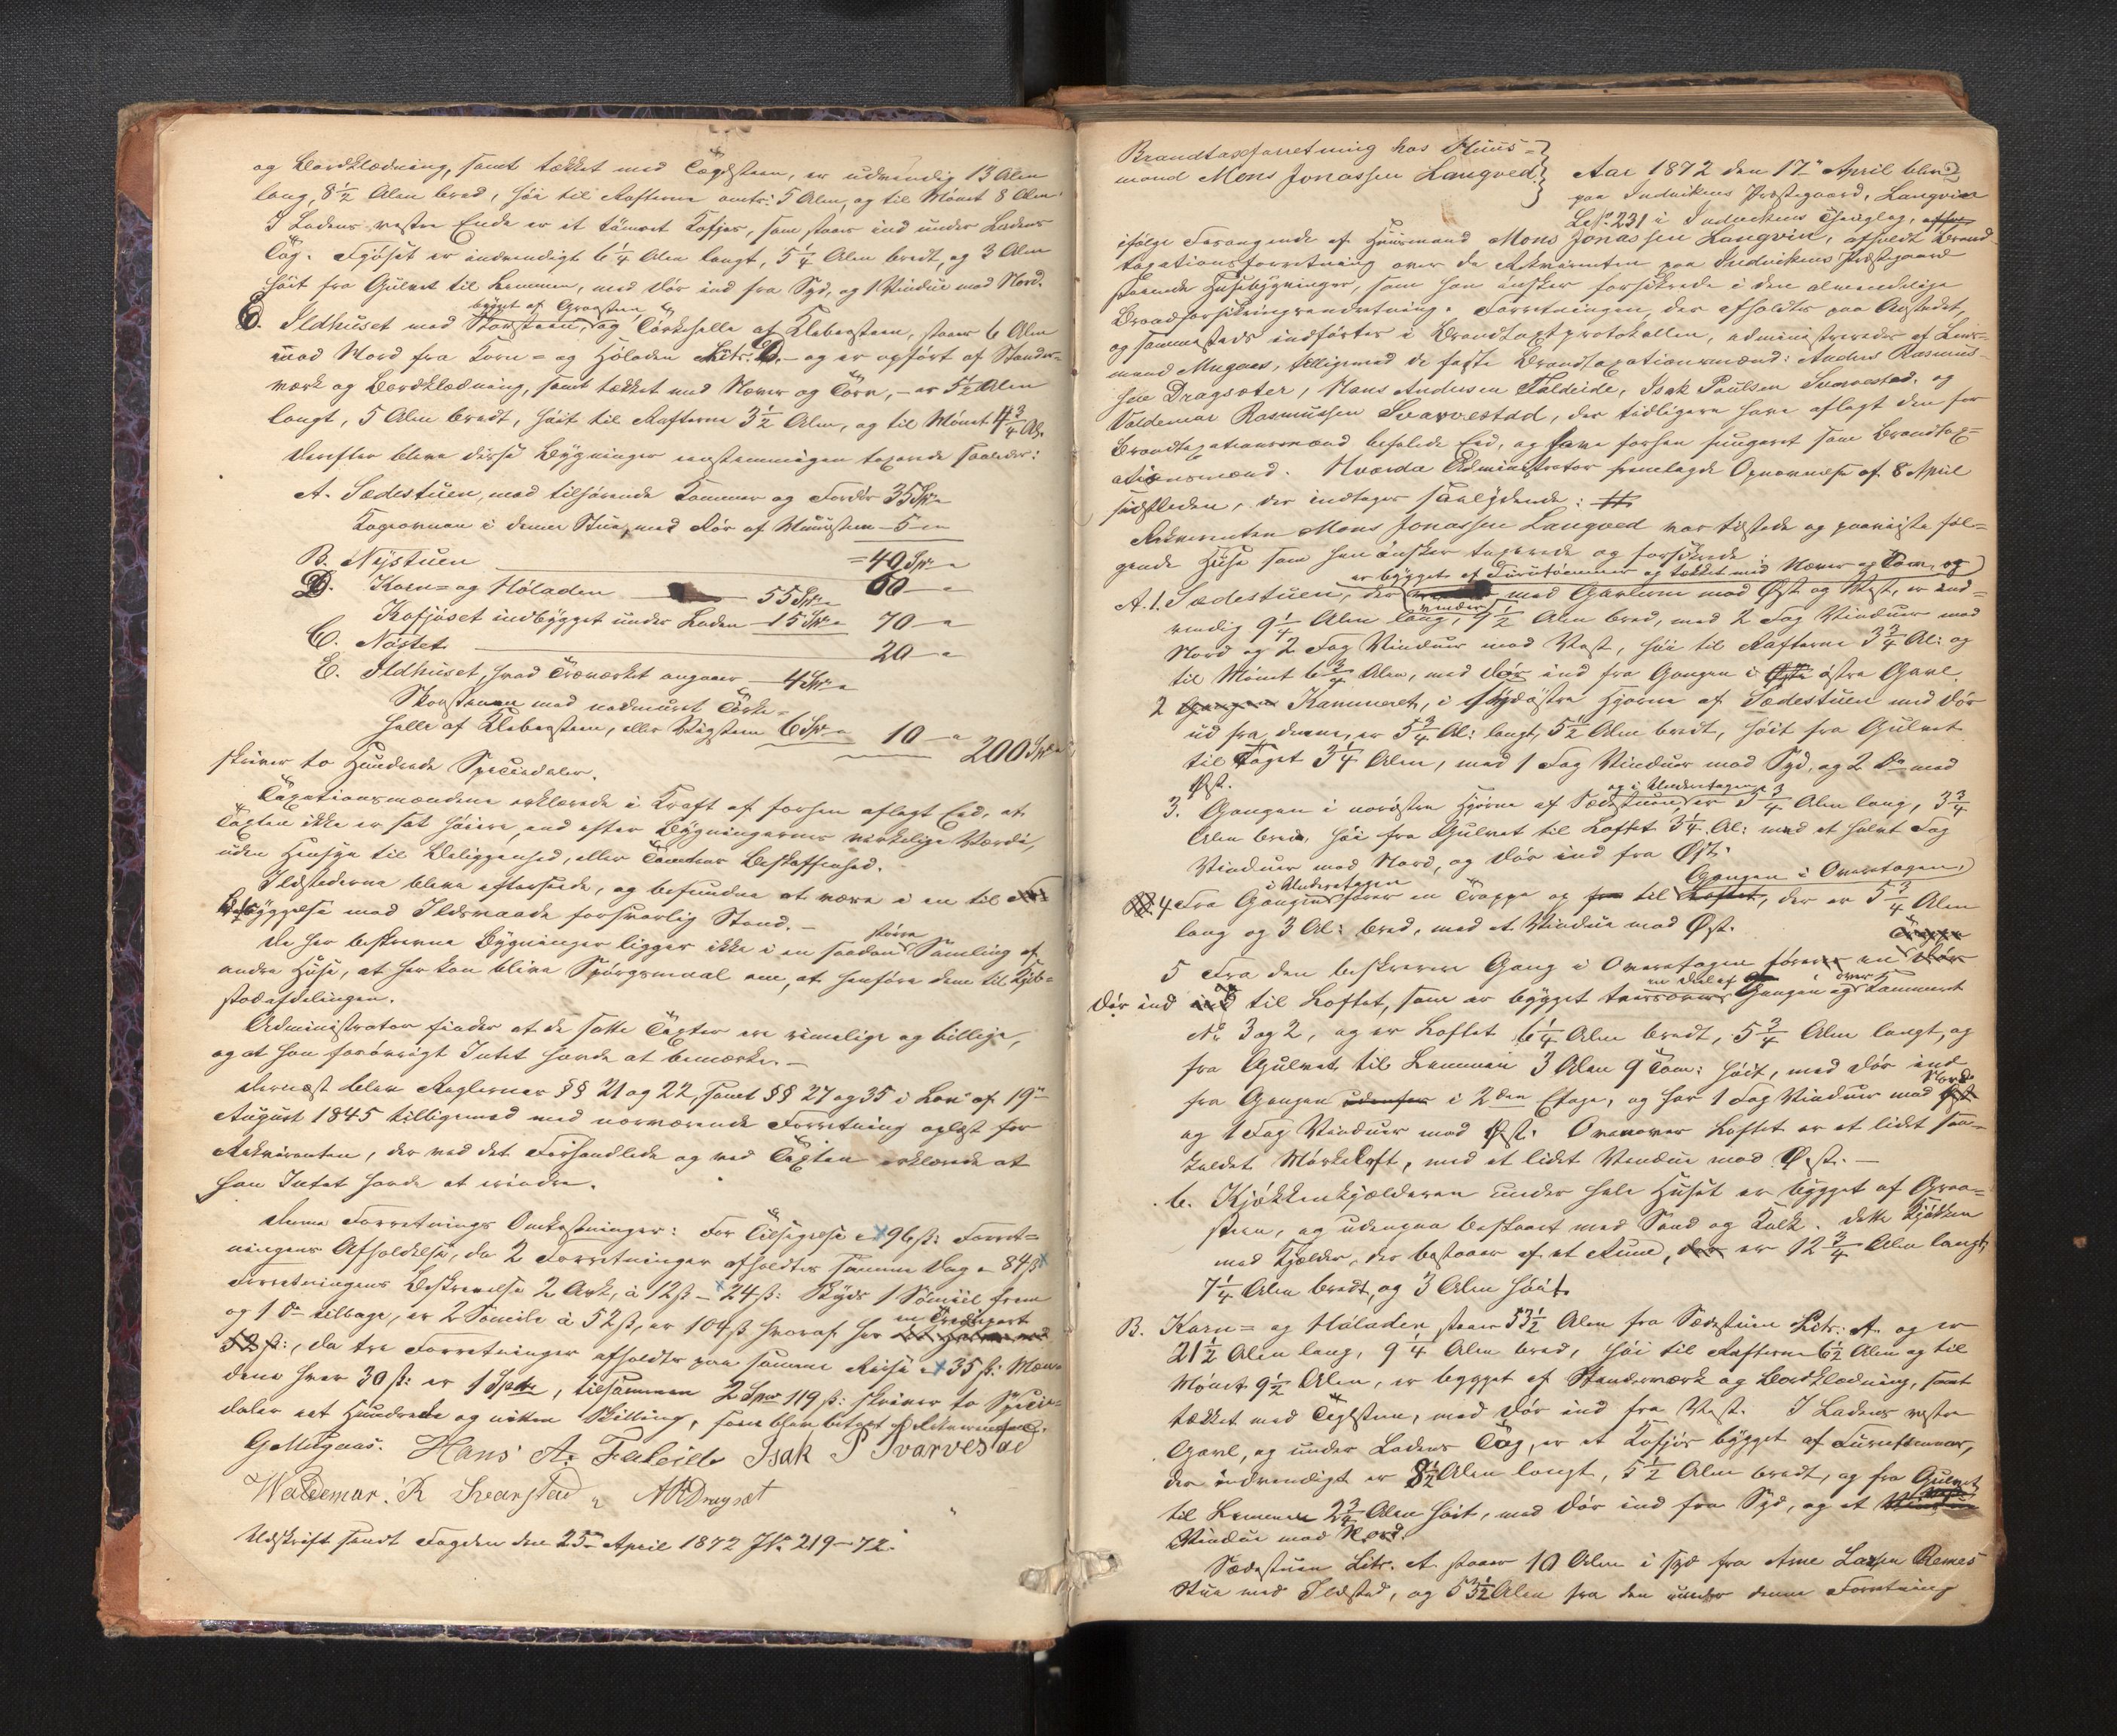 og Bordklædning, samt tækket med Tægelsteen, er udvendig 13 Alen
lang, 8 1/2 Alen bred, høi til Rafterne omtr: 5 Alen, og til Mønet 8 Alen.
I Ladens vestre Ende er et tømret Kofjøs, som staar ind under Ladens
Tag. Fjøset er indvendigt 6 1/4 Alen langt, 5 1/4 Alen bredt, og 3 Alen
høit fra Gulvet til Lemmen, med Dør ind fra Syd, og 1 Vindue mod Nord.
bygget af Graasteen
E. Ildhuset med Skorsteen, og Tørkehelle af Klebersteen, staar 6 Alen
mod Nord fra Korn= og Høladen Litr. D. og er opført af Stander-
værk og Bordklædning, samt tækket med Næver og Torv, – er 5 1/2 Alen
langt, 5 Alen bredt, høit til Rafterne 3 1/2 Alen, og til Mønet 4 3/4 Al.
Derefter bleve disse Bygninger eenstemmigen taxerede saaledes:
A. Sædestuen, med tilhørende Kammer og Fordør 35 Spd
Kageovnen i denne Stue, med Rør af Muursteen 5 "
= 40 Spd "
B. Nystuen 60 "
D. Korn= og Høladen 55 Spd
Kofjøset indbygget under Laden 15 Spd 70 "
C. Nøstet 20 "
E. Ildhuset, hvad Træværket angaaer 4 Spd
Skorstenen med vedmuret Tørke-
helle af Klebersteen, eller Vegsteen 6 Spd 10 " 200 Spd
skriver to Hundrede Speciedaler.
Taxationsmændene erklærede i Kraft af forhen aflagt Eed, at
Taxten ikke er sat høiere, end efter Bygningernes virkelige Værdi,
uden Hensyn til Beliggenhed, eller Tomtens Beskaffenhed.
Ildstederne bleve efterseede, og befundne at være i en til
Betryggelse mod Ildsvaade forsvarlig Stand. –
større
De her beskrevne Bygninger ligger ikke i en saadan Samling af
andre Huse, at her kan blive Spørgsmaal om, at henføre dem til Kjøb-
stadafdelingen.
Administrator finder at de satte Taxter ere rimelige og billige,
og at han forøvrigt Intet havde at bemærke. –
Dernæst blev Reglerne §§ 21 og 22, samt §§ 27 og 35 i Lov af 19de
August 1845 tilligemed med nærværende Forretning oplæst for
Rekvirenten, der ved det Forhandlede og ved Taxten erklærede at
han Intet havde at erindre.
Denne Forretnings Omkostninger: For Tilsigelse 96 ß: Forret-
ningens Afholdelse, da 2 Forretninger afholdtes samme Dag 84 ß
Forretningens Beskrivelse 2 Ark, à 12 ß – 24 ß: Skyds 1 Sømiil frem
og 1 Do tilbage, er 2 Sømile à 52 ß, er 104 ß hvoraf her
en Trediepart
52 ß:, da tre Forretninger afholdtes paa samme Reise 35 ß: Mæn-
dene hver 30 ß: er 1 Spd, tilsammen 2 Spd 119 ß: skriver to Specie-
daler eet Hundrede og nitten Skilling, som blev betalt af Rekvirenten.
G Mugaas. Hans A. Faleide Isak P Svarvestad
Waldemar. R Svarstad A R Dragsæt
Udskrift sendt Fogden den 25de April 1872 J No 219–72.
Brandtaxtforretning hos Huus-
mand Mons Jonassen Langved.
Aar 1872 den 17de April blev
paa Indvikens Præstegaard, Langvin
L No 231 i Indvikens Thinglag,
ifølge Forlangende af Huusmand Mons Jonassen Langvin, afholdt Brand-
taxationsforretning over de Rekvirenten paa Indvikens Præstegaard
staaende Huusbygninger, som han ønsker forsikrede i den almindelige
Brandforsikringsindretning. Forretningen, der afholdtes paa Aastedet,
og sammesteds indførtes i Brandtaxtprotokollen, administreredes af Lens-
mand Mugaas, tilligemed de faste Brandtaxationsmænd: Anders Rasmus-
sen Dragsæter, Hans Andersen Faleide, Isak Poulsen Svarvestad, og
Valdemar Rasmussen Svarvestad, der tidligere have aflagt den for
Brandtaxationsmænd befalede Eed, og have forhen fungeret som Brandtax-
ationsmænd. Hværda Administrator fremlagde Opnævnelse af 8 April
sidstleden, der indtages saalydende: #
Rekvirenten Mons Jonassen Langved var tilstede og paaviiste føl-
gende Huse som han ønsker taxerede og forsikrede:
er bygget af Furutømmer og tækket med Næver og Torv, og
A. 1. Sædestuen, der vender med Gavlerne mod Øst og Vest, er ind-
vendig 9 1/4 Alen lang, 9 1/2 Alen bred, med 2 Fag Vinduer mod
Nord og 2 Fag Vinduer mod Vest, høi til Rafterne 3 3/4 Al: og
til Mønet 6 3/4 Alen, med Dør ind fra Gangen i østre Gavl.
2 Kammeret, i sydøstre Hjørne af Sædestuen med Dør
ud fra denne, er 5 3/4 Al: langt, 5 1/2 Alen bredt, høit fra Gulvet
til Taget 3 1/4 Alen, med 1 Fag Vinduer mod Syd, og 2 Do mod
Øst.
og i Underetagen
3. Gangen i nordøstre Hjørne af Sædestuen er 5 3/4 Alen lang, 3 3/4
Alen bred, høi fra Gulvet til Loftet 3 1/4 Al: med et halvt Fag
Vinduer mod Nord, og Dør ind fra Øst.
i Underetagen Gangen i Overetagen,
4 Fra Gangen fører en Trappe op til Loftet, der er 5 3/4 Alen
lang og 3 Al: bred, med et Vindue mod Øst.
5 Fra den beskrevne Gang i Overetagen fører en Dør
en Deel af over
Dør ind til Loftet, som er bygget tversover Gangen og Kammeret
No 3 og 2, og er Loftet 6 1/4 Alen bredt, 5 3/4 Alen langt, og
fra Gulvet til Lemmen 3 Alen 9 Tom: høit, med Dør ind
fra Gangen i 2den Etage, og har 1 Fag Vinduer mod Nord
og 1 Fag Vinduer mod Øst. Ovenover Loftet er et lidet saa-
kaldet Mørkeloft, med et lidet Vindue mod Øst. –
6. Kjøkkenkjælderen under hele Huset er bygget af Graa-
steen, og udenpaa beslaaet med Sand og Kalk. Dette Kjøkken
med Kjælder, der bestaaer af et Rum, er 12 3/4 Alen langt,
7 1/4 Alen bredt, og 3 Alen høit.
B. Korn= og Høladen staaer 53 1/2 Alen fra Sædestuen Litr: A. og er
21 1/2 Alen lang, 9 1/4 Alen bred, høi til Rafterne 6 1/2 Alen og til
Mønet 9 1/2 Alen, er bygget af Standerværk og Bordklædning, samt
tækket med Tægelsteen, med Dør ind fra Vest. I Ladens vestre
Gavl, og under Ladens Tag, er et Kofjøs bygget af Furutømmer,
der indvendigt er 8 1/2 Alen langt, 5 1/2 Alen bredt, og fra Gulvet
til Lemmen 2 3/4 Alen høit, med Dør ind fra Syd, og et
Vindue mod Nord.
Sædestuen Litr. A. staaer 10 Alen i Syd fra Arne Larsen Remes
Stue med Ildsted, og 53 1/2 Alen fra den under denne Forretning